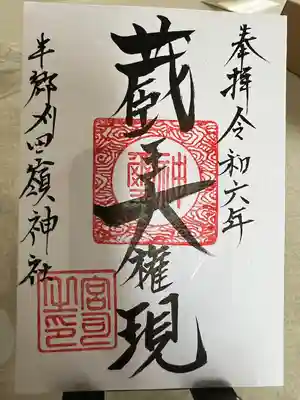 奉拝令和六年
蔵王大権現
刈田嶺神社
宮司之印